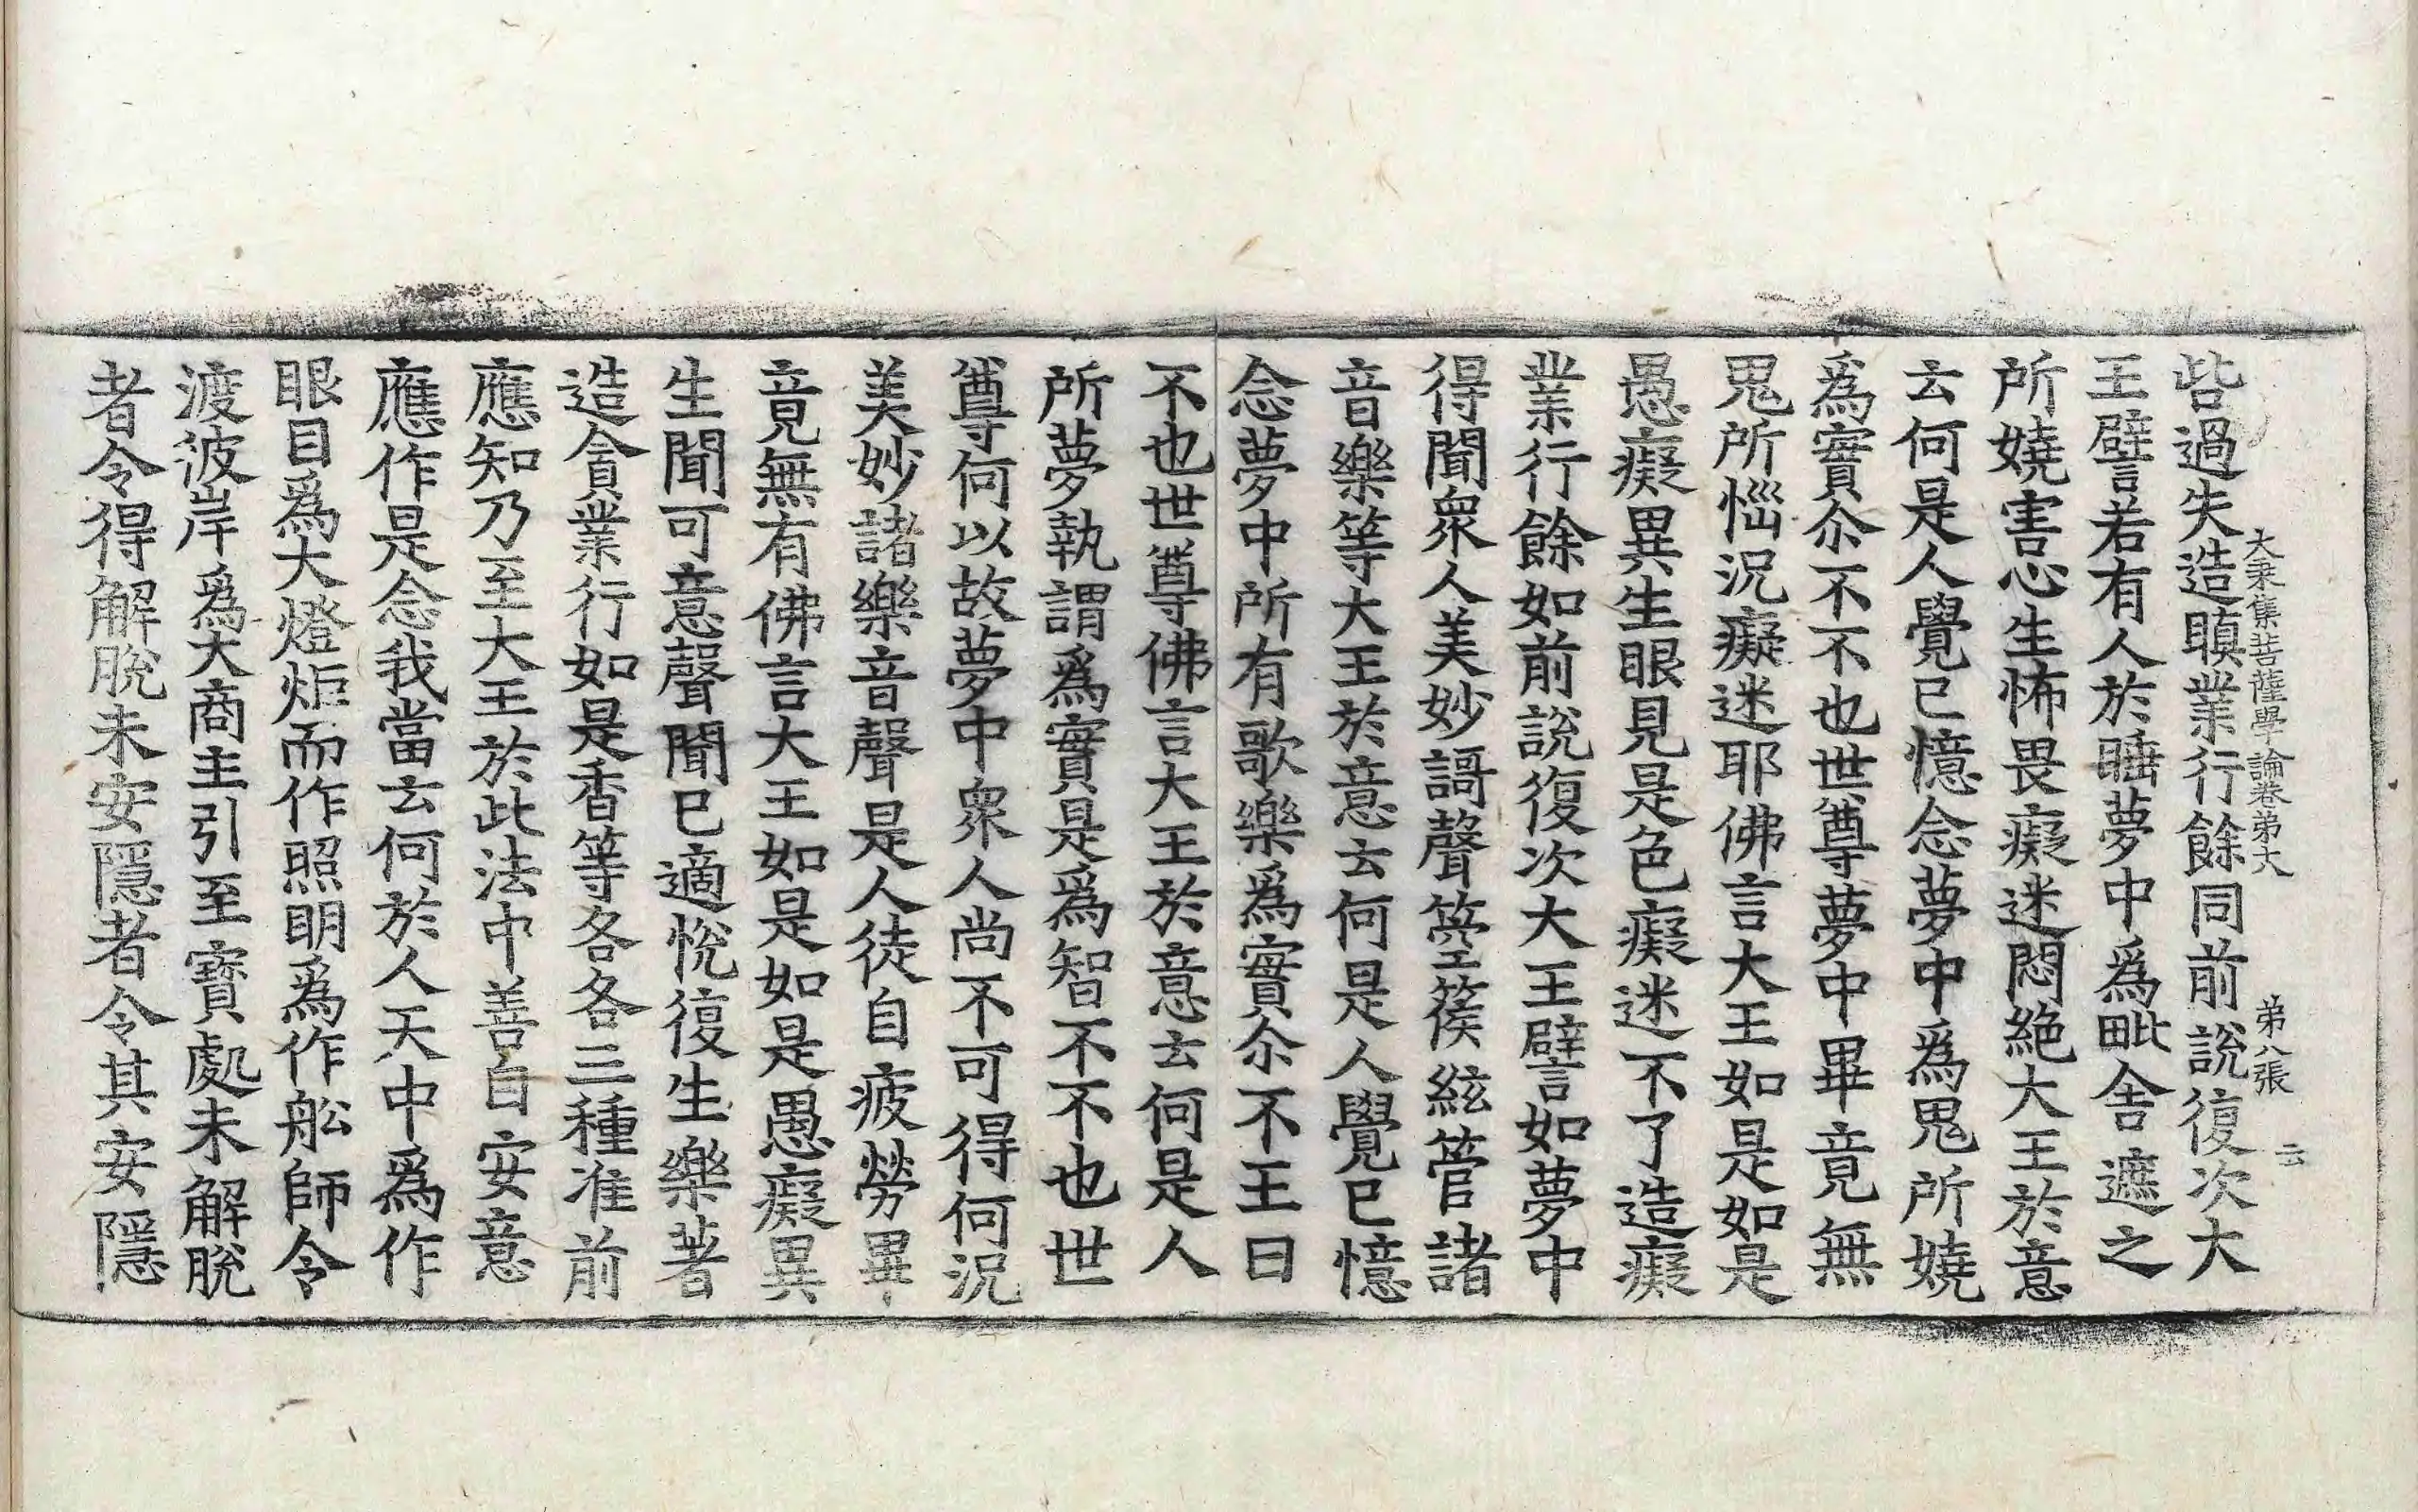 大乗集菩薩學論卷弟大 弟八張 云
呰過失造瞋業行餘同前說復次大
王譬若有人於睡夢中爲毗舍遮之
所嬈害心生怖畏癡迷悶絕大王於意
云何是人覺已憶念夢中爲鬼所嬈
爲實尒不不也世尊夢中畢竟無
鬼所惱況癡迷耶佛言大王如是如是
愚癡異生眼見是色癡迷不了造癡
業行餘如前說復次大王譬如夢中
得聞衆人美妙謌聲箜篌絃管諸
音樂等大王於意云何是人覺已憶
念夢中所有歌樂爲實尒不王曰
不也世尊佛言大王於意云何是人
所夢執謂爲實是爲智不不也世
尊何以故夢中衆人尚不可得何況
美妙諸樂音聲是人徒自疲勞畢
竟無有佛言大王如是如是愚癡異
生聞可意聲聞已適悅復生樂著
造貪業行如是香等各各三種准前
應知乃至大王於此法中善自安意
應作是念我當云何於人天中爲作
眼目爲大燈炬而作照明爲作舩師令
渡彼岸爲大商主引至寶處未解脫
者令得解脫未安隱者令其安隱